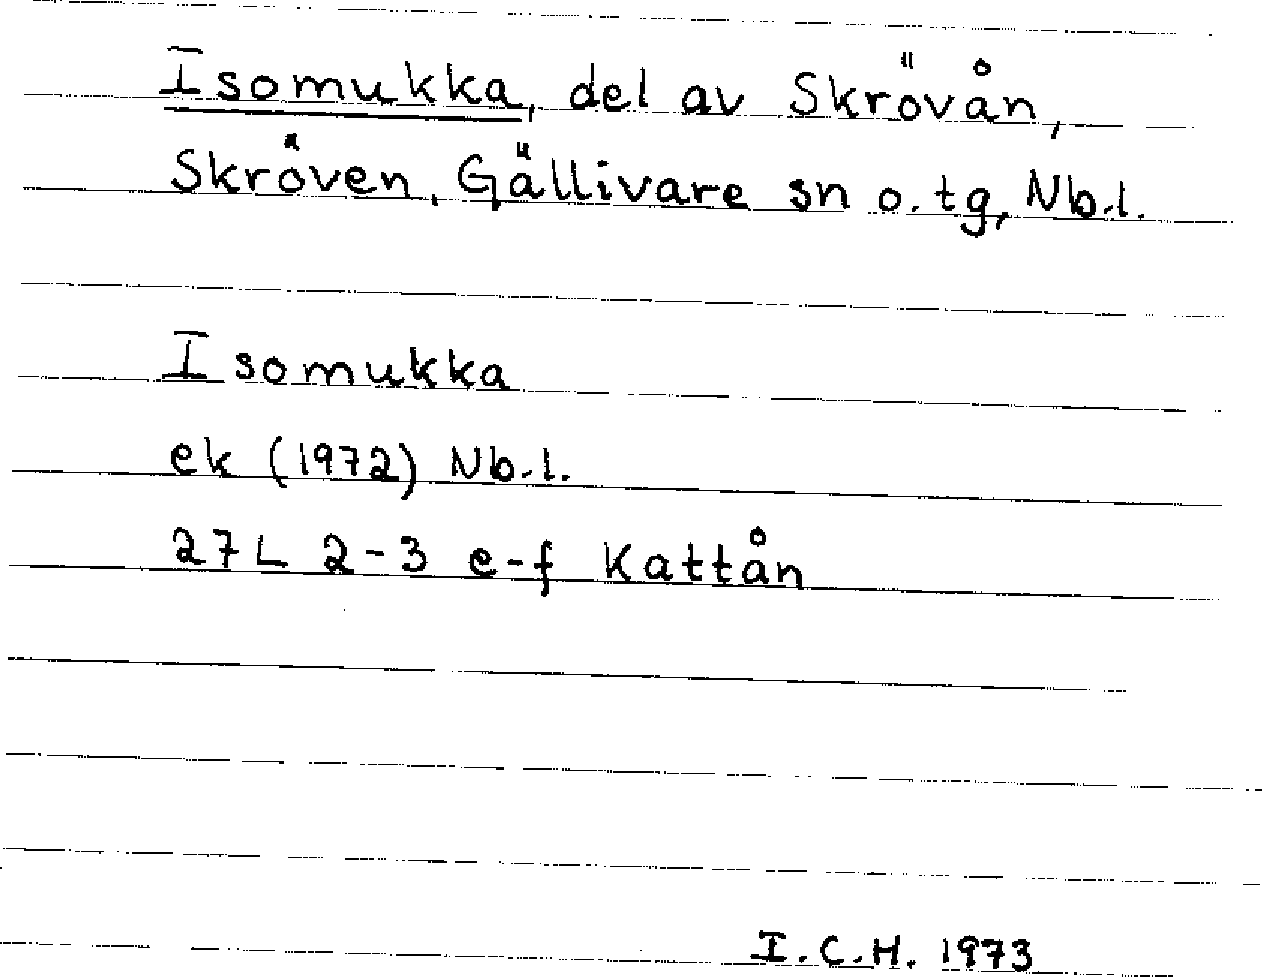 Isomukka, del av Skrövån,
Skröven, Gällivare sn o. tg, Nb.l.
Isomukka
ek (1972) Nb.l.
27L 2-3 e-f Kattån
I.C.H. 1973